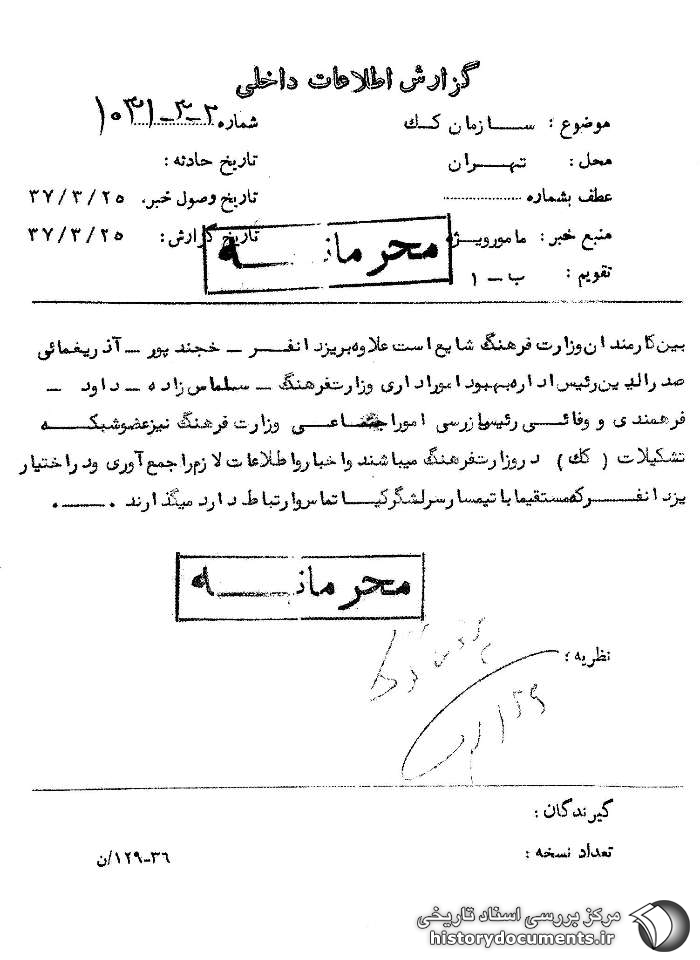 گزارش اطلاعات داخلی
موضوع : ســازمان کـك
شماره ۲-۳-۱۰۳۱
محل : تهــران
تاریخ حادثه :
عطف بشماره
تاریخ وصول خبر. ۳۷/۳/۲۵
منبع خبر : مامورویژه
تاریخ گزارش : ۳۷/۳/۲۵
تقویم : ب - ۱
محرمانــه
بین کارمندان وزارت فرهنگ شایع است علاوه بر یزدانفــر - خجندپور - آذریغمائی
صدرالدین رئیس اداره بهبود امور اداری وزارت فرهنگ - سلماس زاده - داود -
فرهمندی و وفائــی رئیس بازرسی امور اجتماعــی وزارت فرهنگ نیز عضو شبکــه
تشکیلات ( کك ) در وزارت فرهنگ میباشند و اخبار و اطلاعات لازم را جمع آوری و در اختیار
یزدانفــر که مستقیما با تیمسار سرلشگر کیــا تماس و ارتباط دارد میگذارند .
محرمانــه
نظریه :
گیرندگان :
تعداد نسخه :
۳۶-۱۲۹/ن
مرکز بررسی اسناد تاریخی
historydocuments.ir